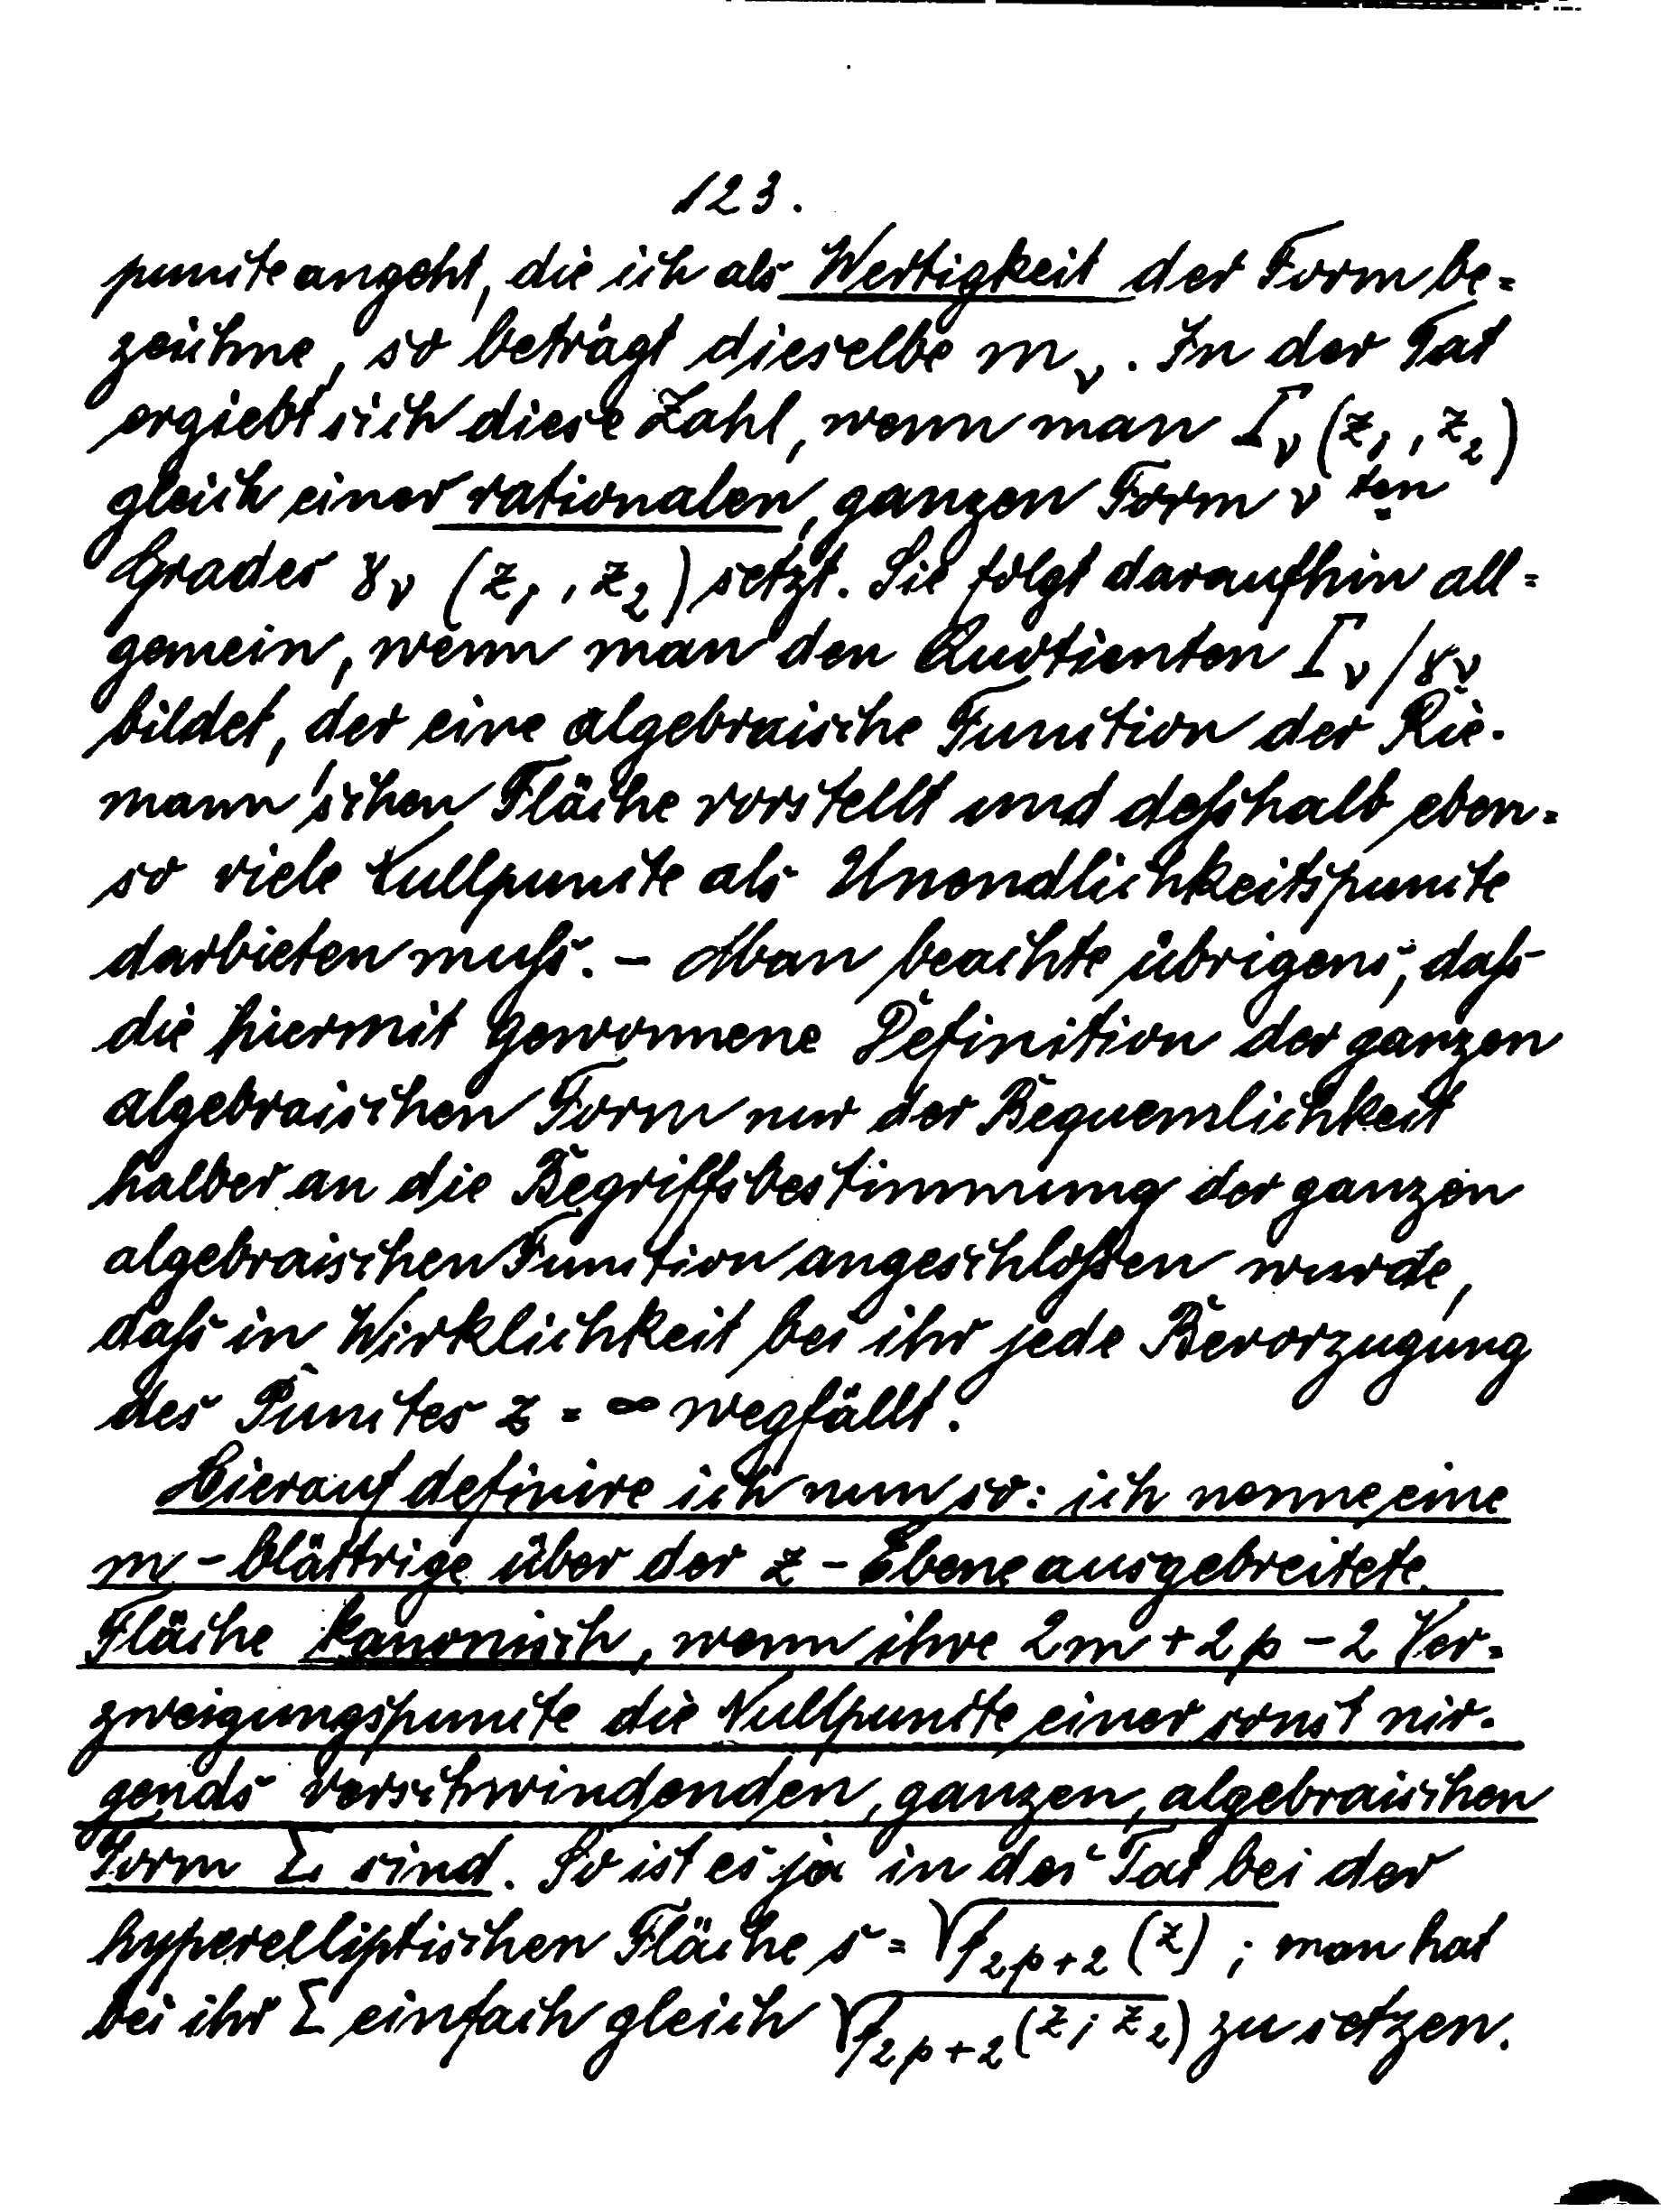 123.
puncte angeht, die ich als Wertigkeit der Form be=
zeichne, so beträgt dieselbe m_ν. In der Tat
ergiebt sich diese Zahl, wenn man Γ_ν (z₁, z₂)
gleich einer rationalen, ganzen Form ν ten
Grades γ_ν (z₁, z₂) setzt. Sie folgt daraufhin all=
gemein, wenn man den Quotienten Γ_ν/γ_ν
bildet, der eine algebraische Function der Rie-
mann'schen Fläche vorstellt und deßhalb eben=
so viele Nullpuncte als Unendlichkeitspuncte
darbieten muß. – Man beachte übrigens, daß
die hiermit gewonnene Definition der ganzen
algebraischen Form nur der Bequemlichkeit
halber an die Begriffsbestimmung der ganzen
algebraischen Function angeschloßen wurde,
daß in Wirklichkeit bei ihr jede Bevorzugung
des Punctes z = ∞ wegfällt.
Hierauf definire ich nun so: ich nenne eine
m-blättrige über der z-Ebene ausgebreitete
Fläche kanonisch, wenn ihre 2m + 2p – 2 Ver=
zweigungspuncte die Nullpuncte einer sonst nir-
gends verschwindenden, ganzen, algebraischen
Form Σ sind. So ist es ja in der Tat bei der
hyperelliptischen Fläche s = √f₂ₚ₊₂ (z) ; man hat
bei ihr Σ einfach gleich √f₂ₚ₊₂ (z₁ z₂) zu setzen.